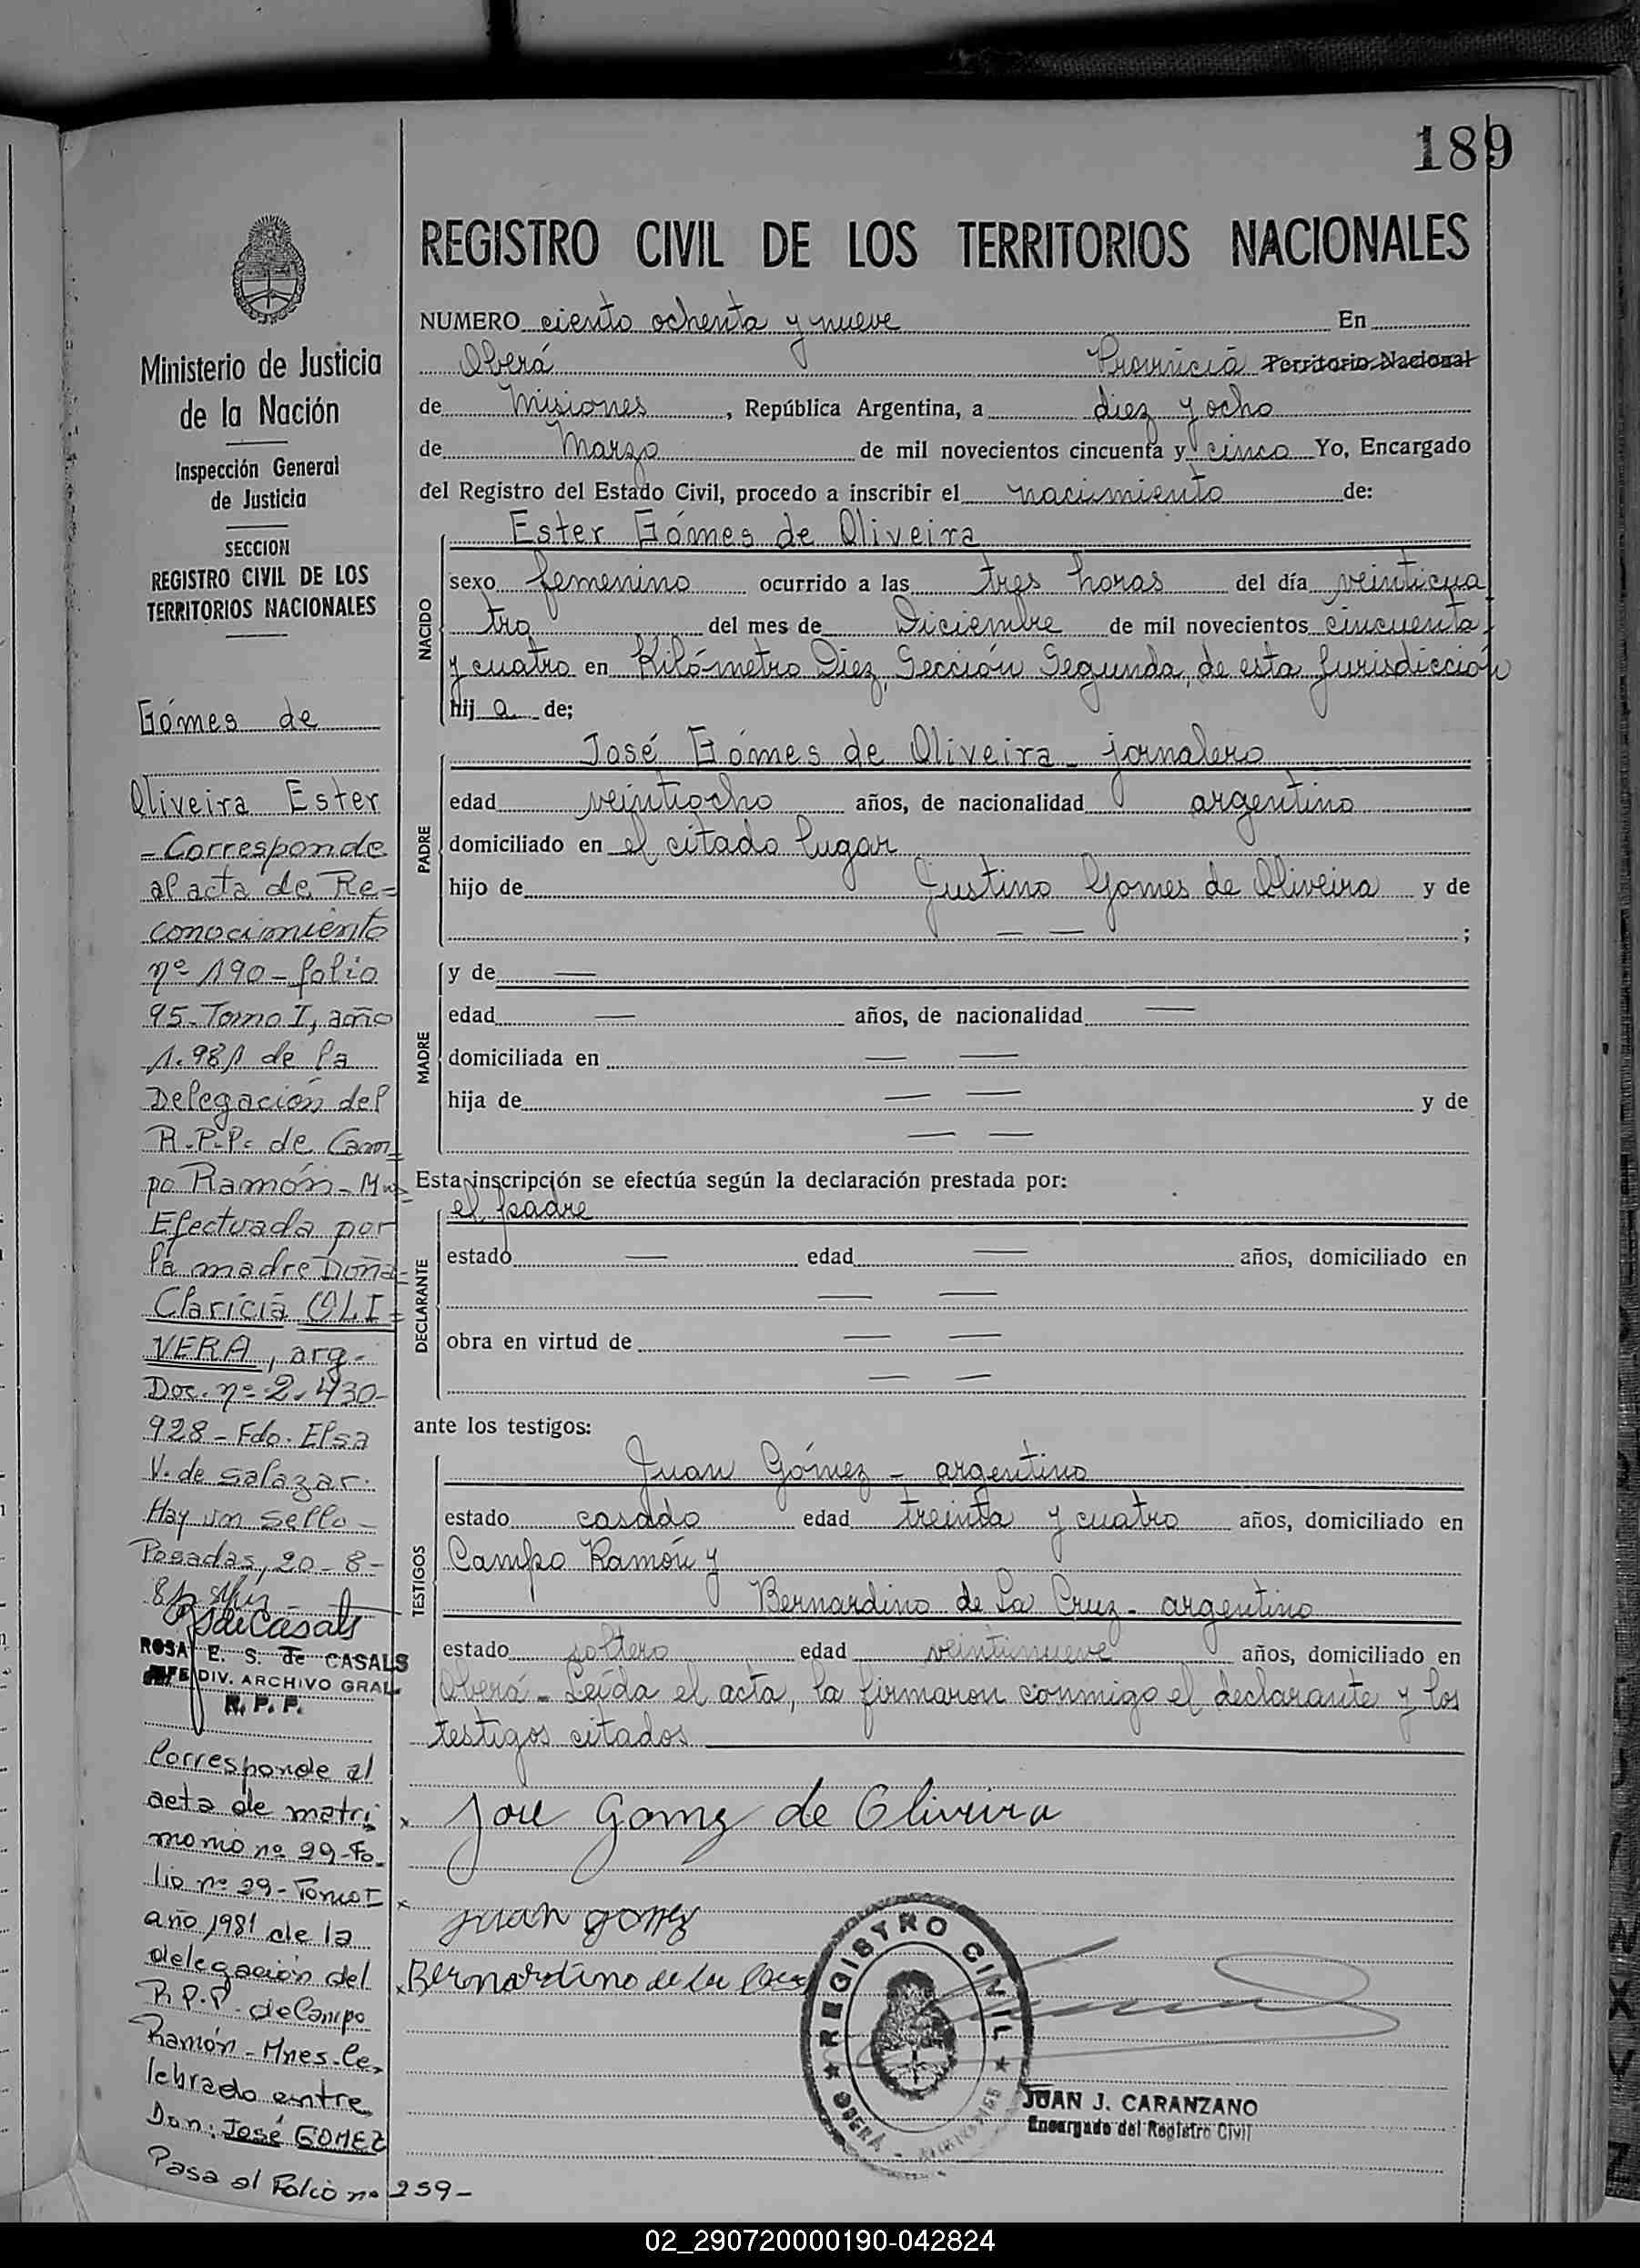 189
REGISTRO CIVIL DE LOS TERRITORIOS NACIONALES
NUMERO ciento ochenta y nueve En
Oberá Provincia Territorio Nacional
de Misiones, República Argentina, a diez y ocho
de Marzo de mil novecientos cincuenta y cinco Yo, Encargado
del Registro del Estado Civil, procedo a inscribir el nacimiento de:
NACIDO
Ester Gómes de Oliveira
sexo femenino ocurrido a las tres horas del día veinticua
tro del mes de Diciembre de mil novecientos cincuenta
y cuatro en Kilómetro Diez, Sección Segunda, de esta Jurisdicción
hij a de;
PADRE
José Gómes de Oliveira - jornalero
edad veintiocho años, de nacionalidad argentino
domiciliado en el citado lugar
hijo de Justino Gomes de Oliveira y de
— — ;
MADRE
y de —
edad — años, de nacionalidad —
domiciliada en — —
hija de — — y de
— —
Esta inscripción se efectúa según la declaración prestada por:
DECLARANTE
el padre
estado — edad — años, domiciliado en
— —
obra en virtud de — —
— —
ante los testigos:
TESTIGOS
Juan Gómez - argentino
estado casado edad treinta y cuatro años, domiciliado en
Campo Ramón y
Bernardino de La Cruz - argentino
estado soltero edad veintinueve años, domiciliado en
Oberá - Leída el acta, la firmaron conmigo el declarante y los
testigos citados
x Jose Gomz de Oliveira
x juan gomez
x Bernardino de la Cruz
REGISTRO CIVIL
OBERÁ - MISIONES
JUAN J. CARANZANO
Encargado del Registro Civil
Ministerio de Justicia
de la Nación
Inspección General
de Justicia
SECCION
REGISTRO CIVIL DE LOS
TERRITORIOS NACIONALES
Gómes de
Oliveira Ester
- Corresponde
al acta de Re=
conocimiento
nº 190 - folio
95 - Tomo I, año
1.981 de la
Delegación del
R.P.P. de Cam=
po Ramón - Mns=
Efectuada por
la madre Doña=
Claricia OLI=
VERA, arg-
Doc. nº 2.430-
928 - Fdo. Elsa
V. de Salazar.
Hay un sello -
Posadas, 20-8-
81
ROSA E. S. de CASALS
JEFE DIV. ARCHIVO GRAL.
R. P. P.
Corresponde al
acta de matri
monio nº 29 - Fo-
lio nº 29 - Tomo I
año 1981 de la
delegación del
R.P.P. de Campo
Ramón - Mnes - Ce-
lebrado entre
Don: José GOMEZ
Pasa al Folio nº 259 -
02_290720000190-042824